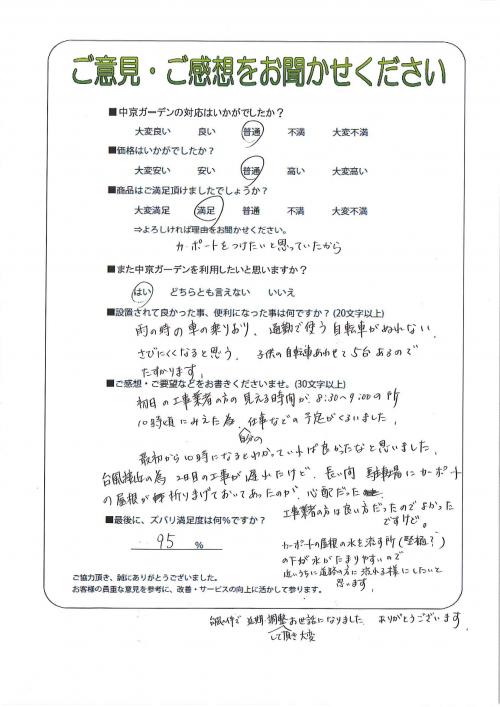 ご意見・ご感想をお聞かせください
■中京ガーデンの対応はいかがでしたか？
大変良い 良い 普通 不満 大変不満
■価格はいかがでしたか？
大変安い 安い 普通 高い 大変高い
■商品はご満足頂けましたでしょうか？
大変満足 満足 普通 不満 大変不満
⇒よろしければ理由をお聞かせください。
カーポートをつけたいと思っていたから
■また中京ガーデンを利用したいと思いますか？
はい どちらとも言えない いいえ
■設置されて良かった事、便利になった事は何ですか？(20文字以上)
雨の時の車の乗りおり、通勤で使う自転車がぬれない。
さびにくくなると思う。子供の自転車あわせて5台あるので
たすかります。
■ご感想・ご要望などをお書きくださいませ。(30文字以上)
初日の工事業者の方の見える時間が8:30～9:00の所
10時頃にみえた為、仕事などの予定がくるいました。
自分の
最初から10時になるとわかっていれば良かったなと思いました。
台風接近の為2日目の工事が遅れたけど、長い間 駐車場にカーポート
の屋根が折りまげておいてあったのが、心配だった
工事業者の方は良い方だったのでよかった
ですけど。
■最後に、ズバリ満足度は何％ですか？
95 ％
カーポートの屋根の水を流す所(竪樋？)
の下が水がたまりやすいので
近いうちに道路の方に流れる様にしたいと
思います
ご協力頂き、誠にありがとうございました。
お客様の貴重な意見を参考に、改善・サービスの向上に活かして参ります。
台風の件で 延期 調整お世話になりました ありがとうございます
して頂き大変